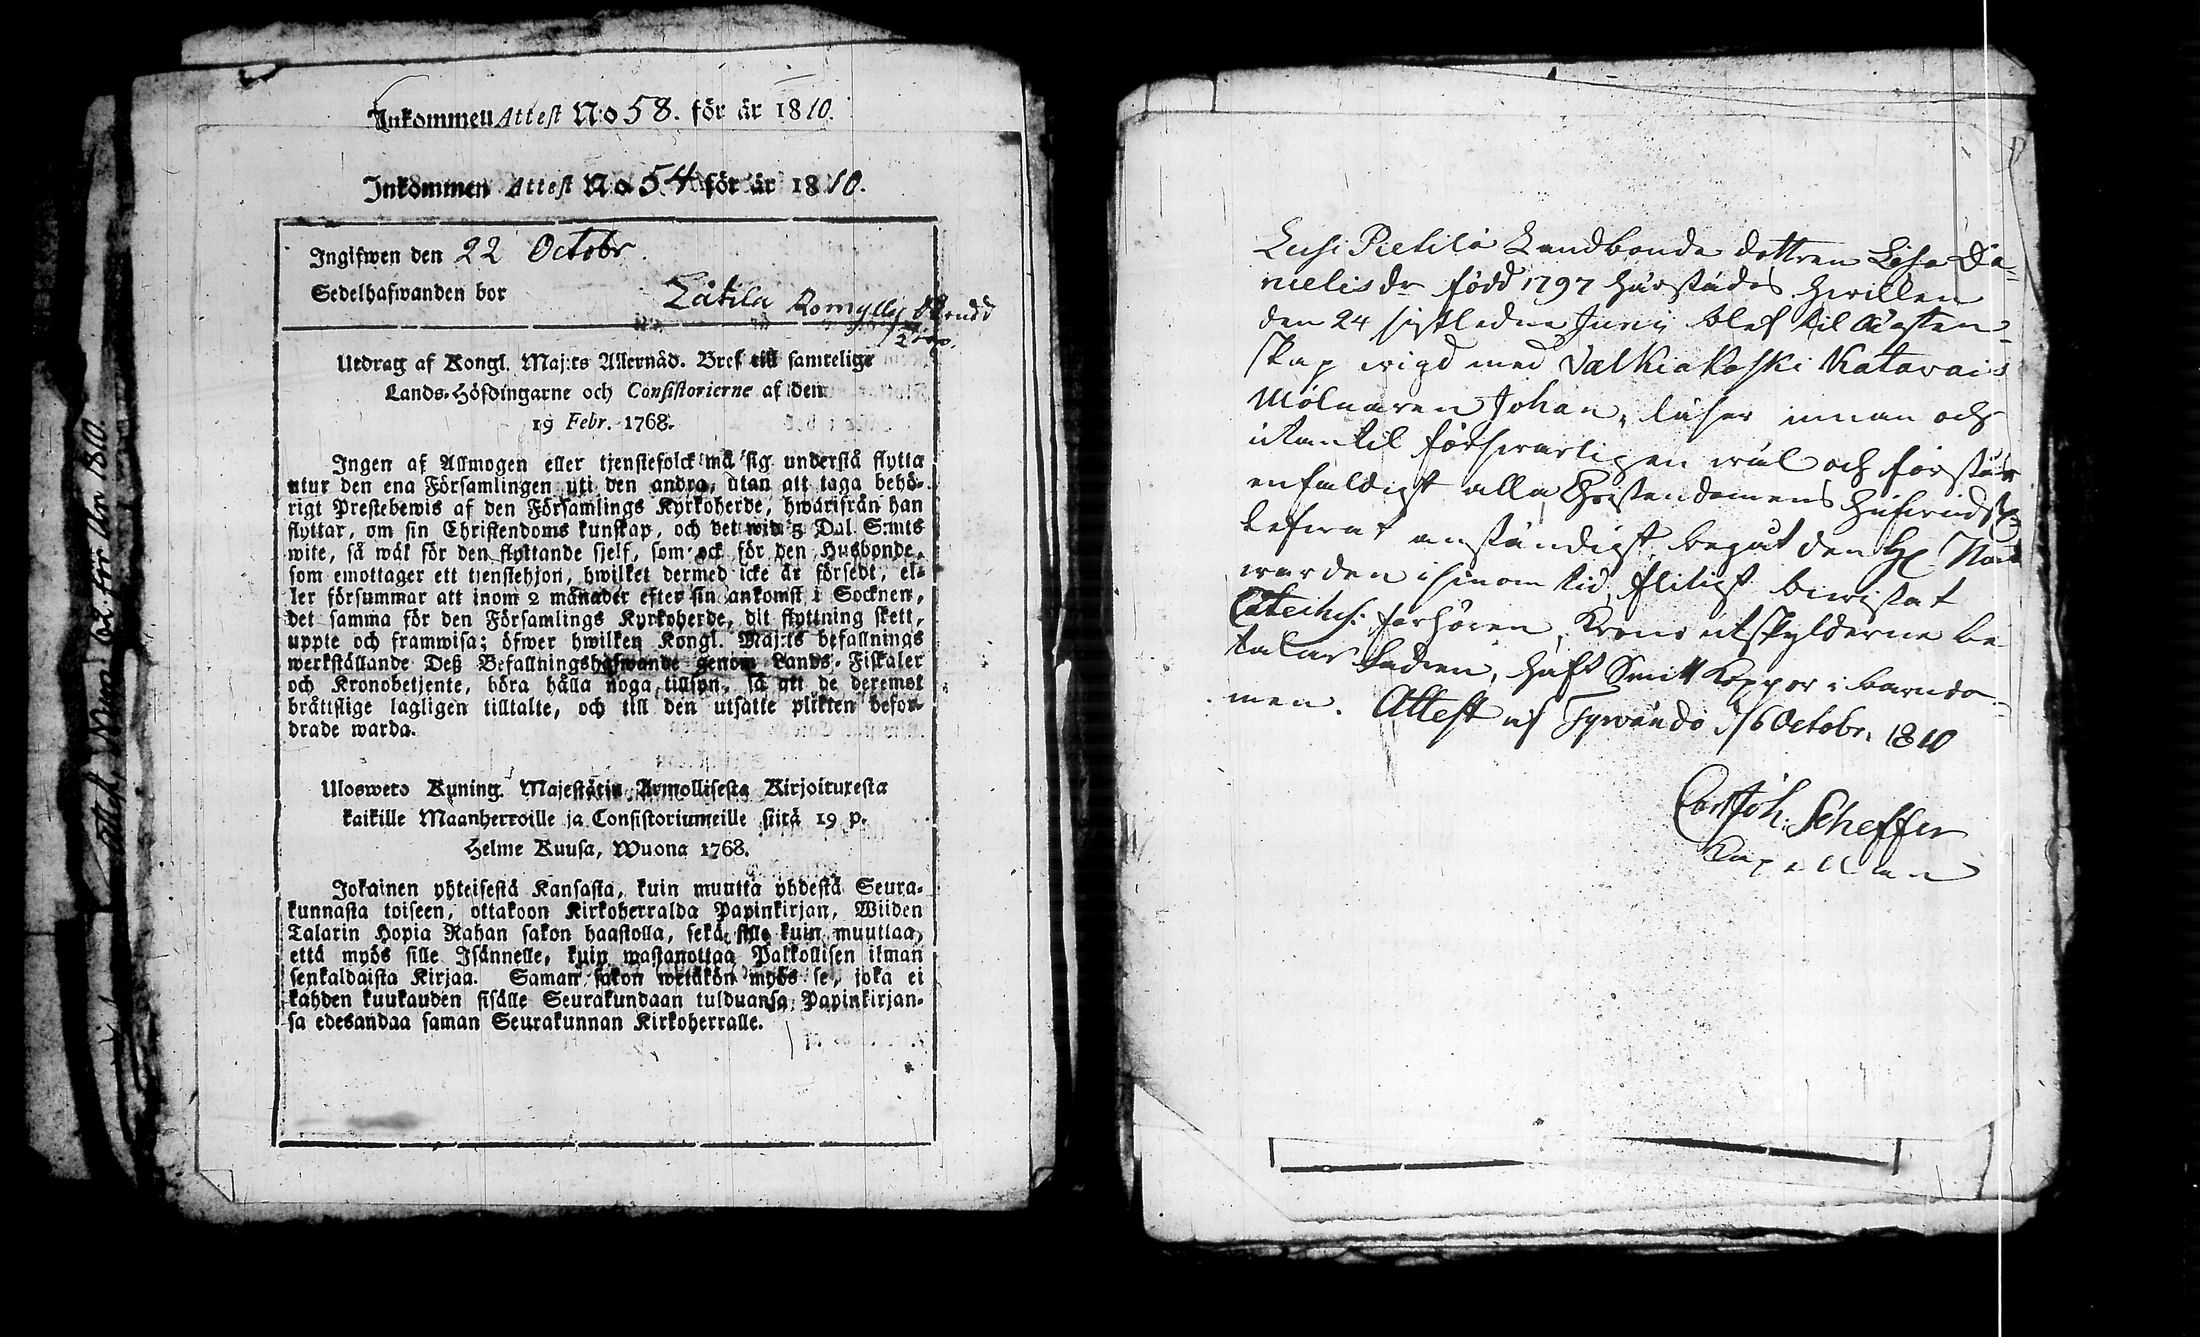 Inkommen Attest No 58. för år 1810.
Inkommen Attest No 54 för år 1810.
Ingifwen den 22 Octobr.
Sedelhafwanden bor Låtila Romylly
Utdrag af Kongl. Maj:ts Allernåd. Bref till samtelige
Lands-Höfdingarne och Consistorierne af den
19 Febr. 1768.
Ingen af Allmogen eller tjenstefolck må sig understå flytta
utur den ena Församlingen uti den andra, utan att taga behö-
rigt Prestebewis af den Församlings Kyrkoherde, hwarifrån han
flyttar, om sin Christendoms kunskap, och det wid 5 Dal. S:mts
wite, så wäl för den flyttande sjelf, som ock för den Husbonde,
som emottager ett tjenstehjon, hwilket dermed icke är försedt, el-
ler försummar att inom 2 månader efter sin ankomst i Socknen,
det samma för den Församlings Kyrkoherde, dit flyttning skett,
uppte och framwisa; öfwer hwilken Kongl. Maj:ts befallnings
werkställande Deß Befallningshafwande genom Lands-Fiskaler
och Kronobetjente, böra hålla noga tillsyn, så att de deremot
bråttslige lagligen tilltalte, och till den utsatte plikten befor-
drade warda.
Uloswето Kuning. Majestätin Armollisesta Kirjoituxesta
kaikille Maanherroille ja Consistoriumeille siitä 19 p.
Helme Kuusa, Wuona 1768.
Jokainen yhteisestä Kansasta, kuin muutta yhdestä Seura-
kunnasta toiseen, ottakoon Kirkoherralda Papinkirjan, Wiiden
Talarin Hopia Rahan sakon haastolla, sekä sille kuin muuttaa,
että myös sille Isännelle, kuin wastanottaa Palkollisen ilman
senkaldaista Kirjaa. Saman sakon wetäkön myös se, joka ei
kahden kuukauden sisälle Seurakundaan tulduansa Papinkirjan-
sa edesandaa saman Seurakunnan Kirkoherralle.
Attest Num: 62. för År 1810.
Pietilä Landbonde dottren Lisa Da-
nielis dr född 1797 härstädes hwilken
den 24 sistledne Junij blef til Ägten-
skap wigd med Valkiakoski Katavais
Mölnaren Johan, läser innan och
utantil försvarligen wäl och förstår
enfaldigt alla Christendomens hufwudsty
lefwat anständigt, begåt den H Natt
warden i sinom tid, flitigt biwistat
Catechis: förhören, Krono utskylderne be-
talar , haft Smitt Koppor i barndo-
men. Attest af Tyrwändö d 16 Octobr. 1810
Carl Joh. Scheffer
Kapellan